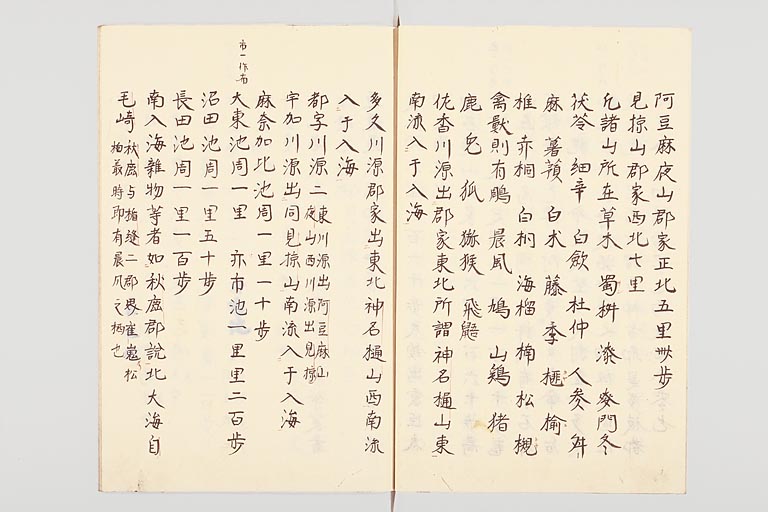 阿豆麻夜山郡家正北五里卌歩
見椋山郡家西北七里
凡諸山所在草木蜀椒漆麥門冬
茯苓細辛白歛杜仲人參舛
麻薯蕷白朮藤李榧榆
椎赤桐白桐海榴楠松槻
禽獸則有鵰晨風鳩山鶏猪
鹿兎狐獼猴飛鼯
佐香川源出郡家東北所謂神名樋山東
南流入于入海
多久川源郡家出東北神名樋山西南流
入于入海
都字川源二東川源出阿豆麻
夜山西川源出見椋山
宇加川源出同見椋山南流入于入海
麻奈加比池周一里一十歩
大東池周一里亦市池一里里二百歩
市一作市
沼田池周一里五十歩
長田池周一里一百歩
南入海雜物等者如秋鹿郡說北大海自
毛崎秋鹿与楯縫二郡界崔嵬松
柏叢時即有晨風之栖也